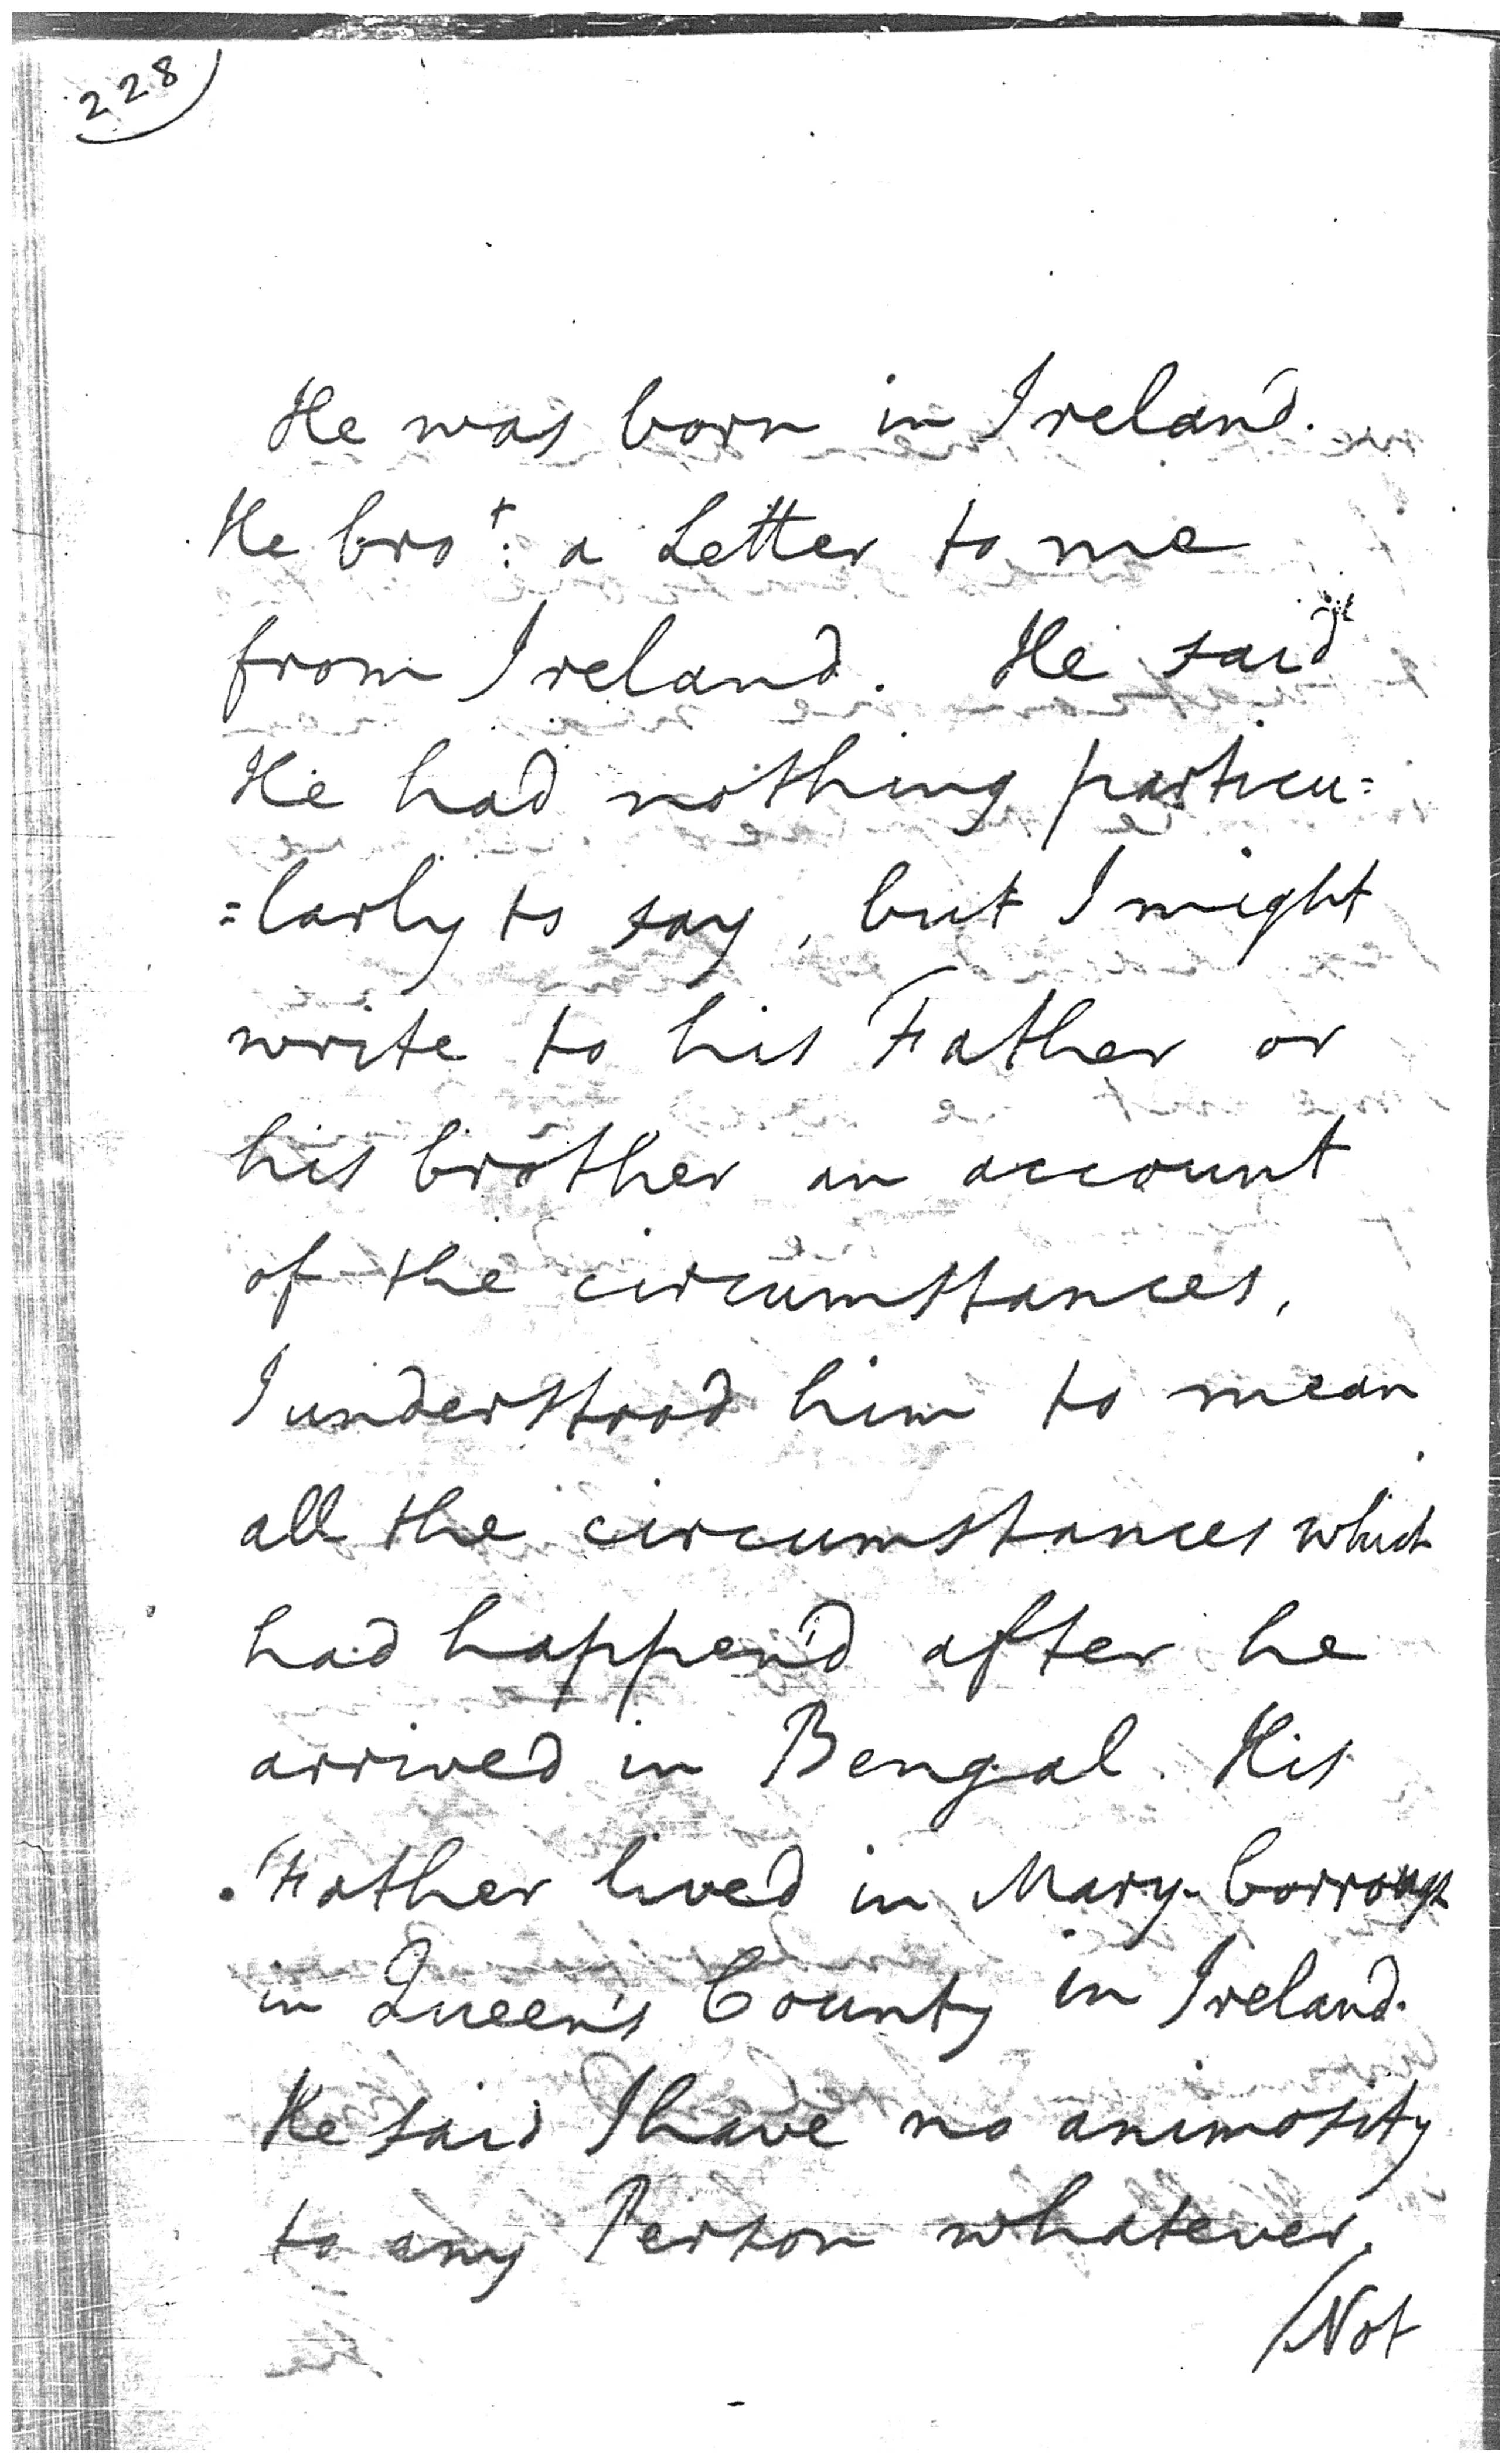 228
He was born in Ireland.
He bro^t: a Letter to me
from Ireland. He said
He had nothing particu=
=larly to say, but I might
write to his Father or
his brother an account
of the circumstances,
I understood him to mean
all the circumstances which
had happen'd after he
arrived in Bengal. His
Father lived in Mary-borrough
in Queen's County in Ireland.
He said I have no animosity
to any Person whatever.
/Not